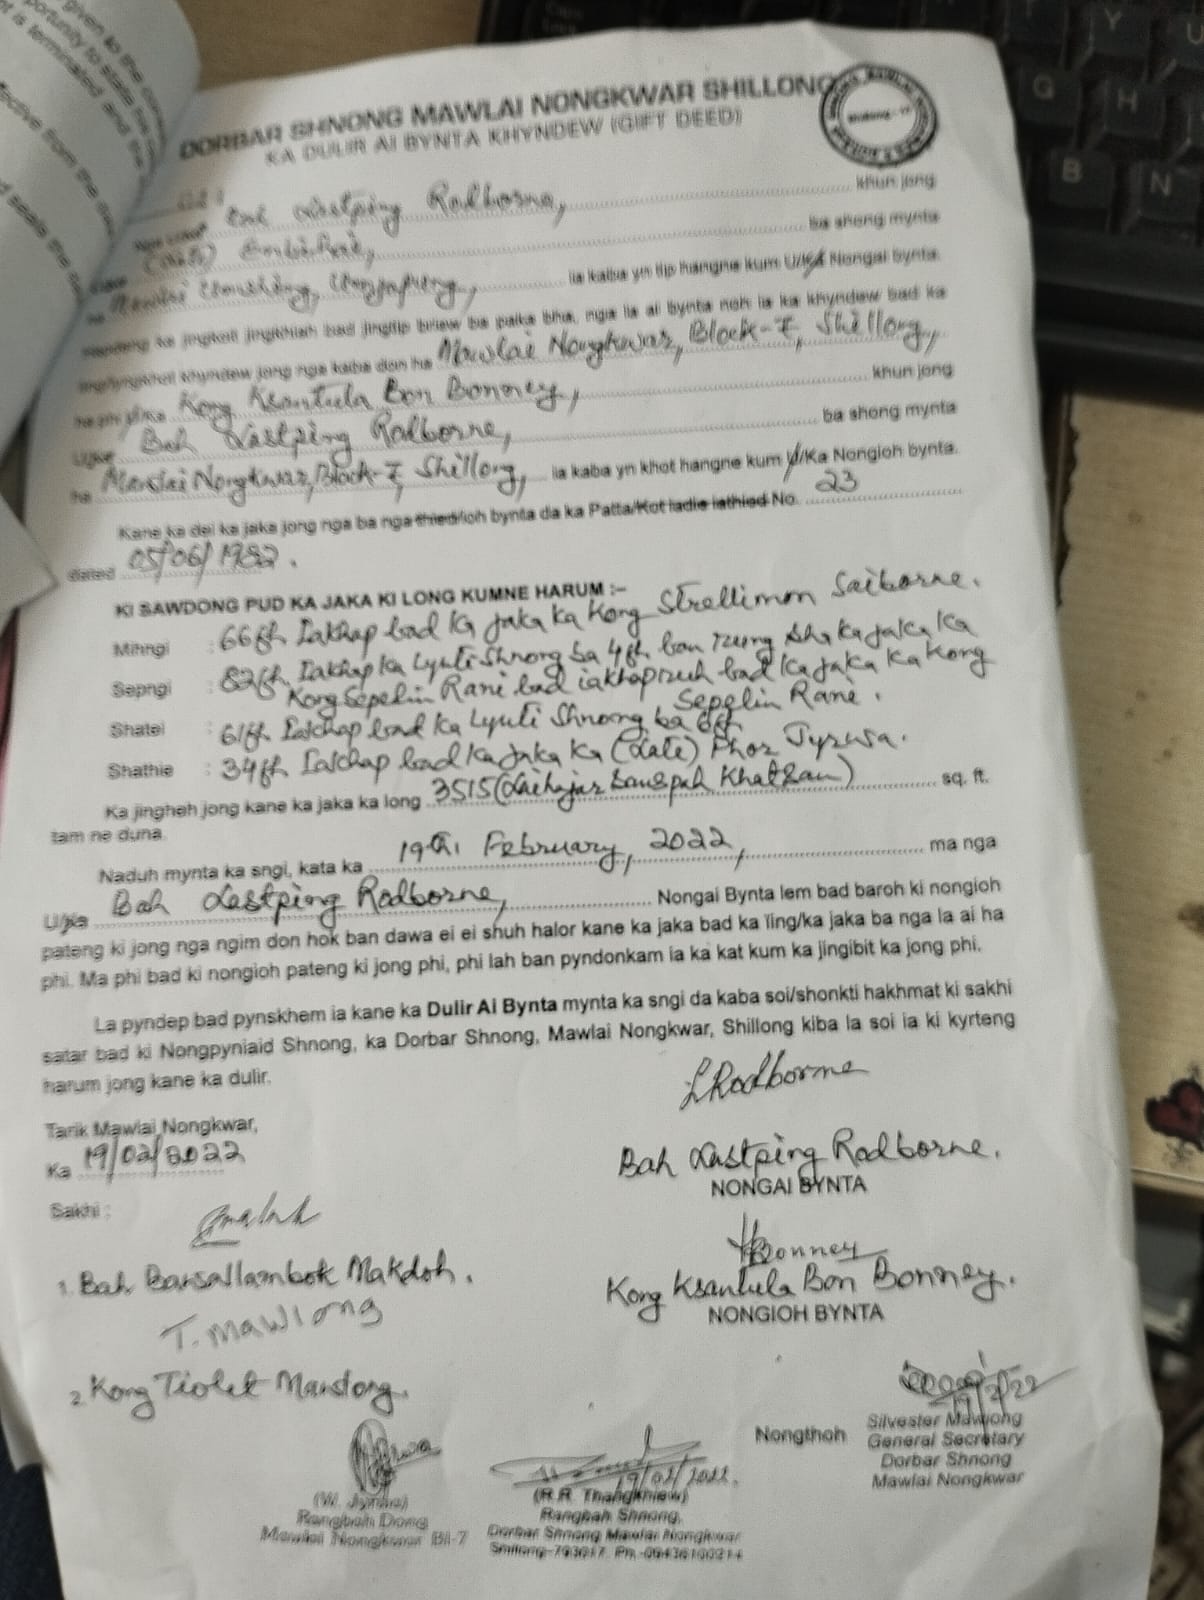 given to the
portunity to state
is terminated and the
effective from the
DORBAR SHNONG MAWLAI NONGKWAR SHILLONG
KA DULIR AI BYNTA KHYNDEW (GIFT DEED)
Lastping Rodborne, khun jong
(Late) ba shong mynta
ha Mawlai Umshing, ia kaba yn tip hangne kum U/Ka Nongai bynta.
ka jingkoit jingkhiah bad jingtip briew ba paka bha, nga la ai bynta noh ia ka khyndew bad ka
khyndew jong nga kaba don ha Mawlai Nongkwar, Block-7, Shillong,
ha phi Kong Ksantula Bon Bonney, khun jong
U/Ka Bah Lastping Rodborne, ba shong mynta
ha Mawlai Nongkwar, Block-7, Shillong, ia kaba yn khot hangne kum U/Ka Nongioh bynta.
Kane ka dei ka jaka jong nga ba nga thied/ioh bynta da ka Patta/Kot ladie iathied No. 23
dated 05/06/1982.
KI SAWDONG PUD KA JAKA KI LONG KUMNE HARUM :-
Mihngi : 66ft Iakhap bad ka jaka ka Kong Strellimon Saiborne.
Sepngi : 82ft Iakhap ka Lynti Shnong ba 4ft ban rung sha ka jaka ka
Kong Sepelin Rani bad iakhap ruh bad ka jaka ka Kong
Sepelin Rane.
Shatei : 61ft Iakhap bad ka Lynti Shnong ba 6ft
Shathie : 34ft Iakhap bad ka jaka ka (Late) Phor Tyrsa.
Ka jingheh jong kane ka jaka ka long 3515 (Laihajar sanspah Khatsan) sq. ft.
tam ne duna.
Naduh mynta ka sngi, kata ka 19th February, 2022, ma nga
U/Ka Bah Lastping Rodborne, Nongai Bynta lem bad baroh ki nongioh
pateng ki jong nga ngim don hok ban dawa ei ei shuh halor kane ka jaka bad ka ïing/ka jaka ba nga la ai ha
phi. Ma phi bad ki nongioh pateng ki jong phi, phi lah ban pyndonkam ia ka kat kum ka jingibit ka jong phi.
La pyndep bad pynskhem ia kane ka Dulir Ai Bynta mynta ka sngi da kaba soi/shonkti hakhmat ki sakhi
satar bad ki Nongpyniaid Shnong, ka Dorbar Shnong, Mawlai Nongkwar, Shillong kiba la soi ia ki kyrteng
harum jong kane ka dulir.
LRodborne
Tarik Mawlai Nongkwar,
Ka 19/02/2022
Bah Lastping Rodborne.
NONGAI BYNTA
Sakhi :
HBonney
1. Bah Barsallambok Makdoh.
Kong Ksantula Bon Bonney.
NONGIOH BYNTA
T. Mawlong
2. Kong Tiolet Mawlong.
19/2/22
Nongthoh
Silvester Mawlong
General Secretary
Dorbar Shnong
Mawlai Nongkwar
19/02/2022.
(W. Jyrwa)
Rangbah Dong
Mawlai Nongkwar Bl-7
(R.R. Thangkhiew)
Rangbah Shnong,
Dorbar Shnong Mawlai Nongkwar
Shillong-793017. Ph.-09436100214
Y
U
G
H
B
N